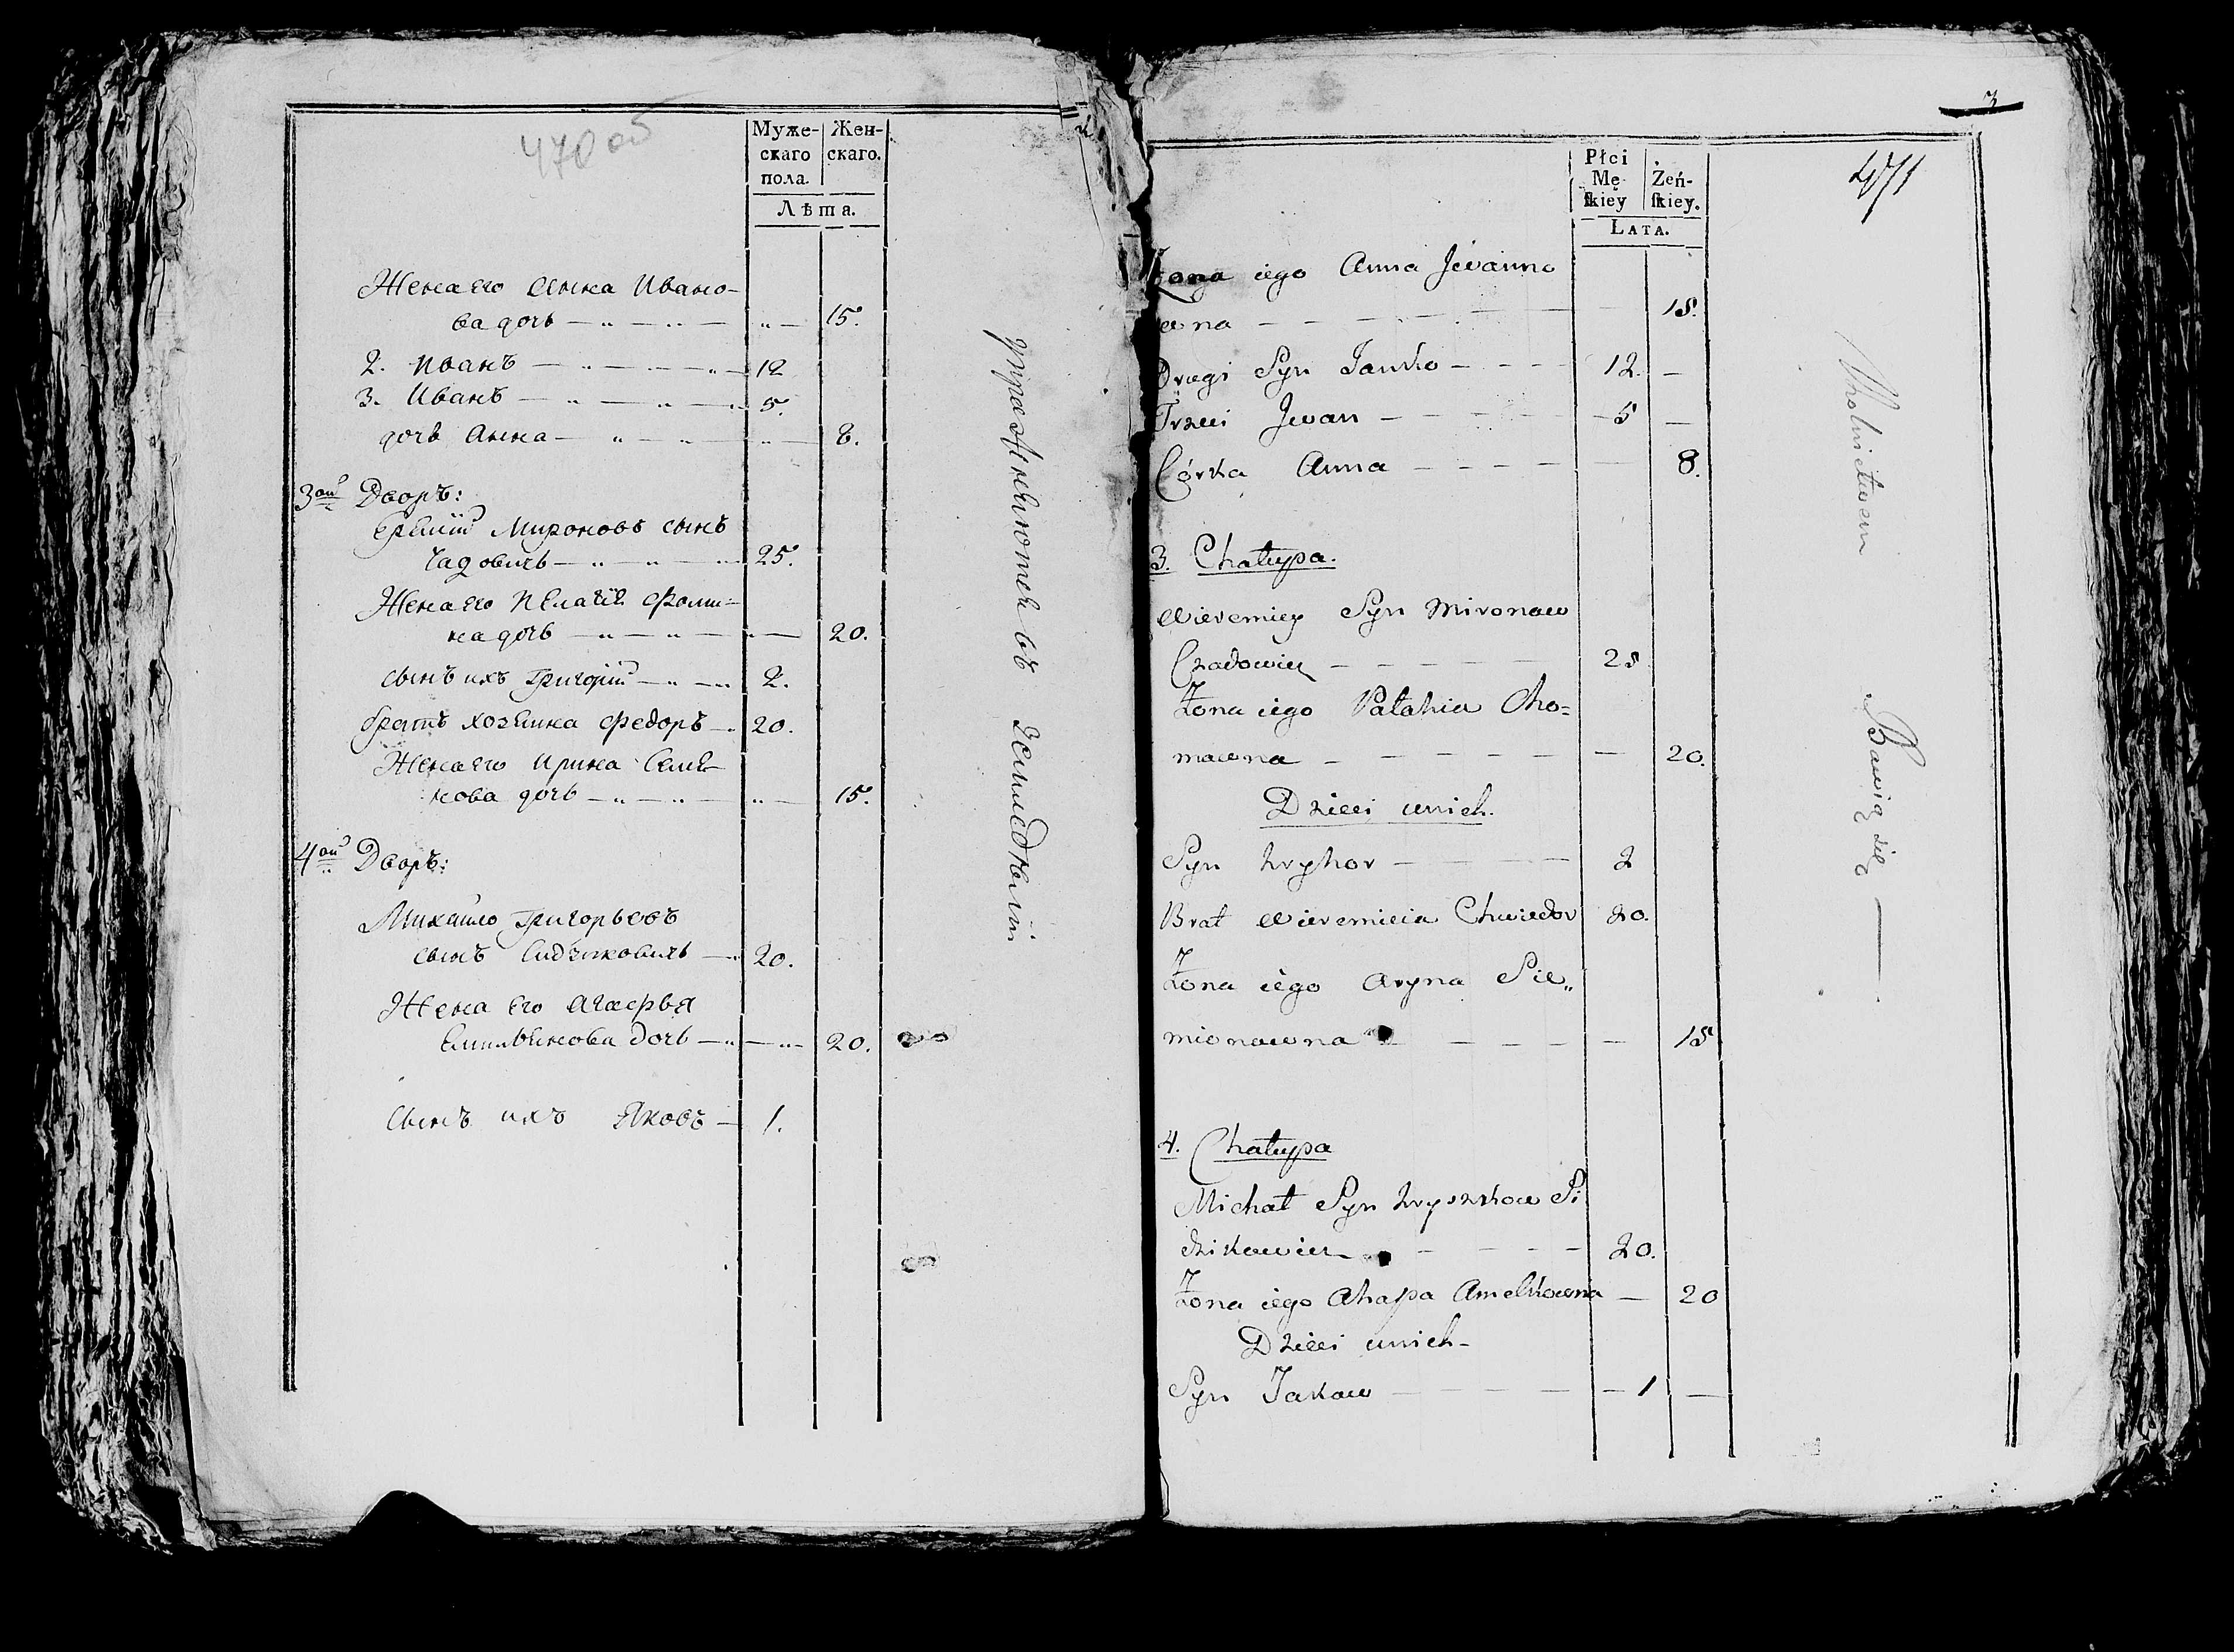 470 об
Муже- Жен-
скаго скаго.
пола.
Лѣта.
Жена его Анна Ивано-
ва дочь — „ — „ — „ — 15.
2. Иванъ — „ — „ — 12
3. Иванъ — „ — „ — 5.
дочь Анна — „ — „ — „ — 8.
3ой Дворъ:
Еремѣй Мироновъ сынъ
Чадовичь — „ — „ — „ 25.
Жена его Пелагѣя Фоми-
на дочь — „ — „ — „ — 20.
сынъ ихъ Григорій — „ — „ 2.
братъ хозяина Федоръ — „ 20.
Жена его Ирина Семе-
нова дочь — „ — „ — „ — 15.
4ой Дворъ:
Михайло Григорьевъ
сынъ Сидзиковичь — „ 20.
Жена Его Агафья
Емильянова дочь — „ — „ — 20.
Сынъ ихъ Яковъ — 1.
упражняются въ земледѣлiи
3
471
Płci
Mę- Żeń-
skiey skiey.
LATA.
Żona iego Anna Jwanno
wna — — — — — — — 15.
Drugi Syn Janko — — — 12. —
Trzeci Jwan — — — — 5 —
Córka Anna — — — — — 8.
3. Chałupa.
Wieremiey Syn Mironaw
Czadowicz — — — — — 25
Żona iego Pałahia Cho=
mawna — — — — — — 20.
Dzieci unich.
Syn Hryhor — — — — 2
Brat Wieremieia Chwiedor 20.
Żona iego Aryna Sie„
mionawna — — — — — 15
4. Chałupa
Michał Syn Hryszkow Si
dzikowicz — — — — 20.
Żona iego Ahapa Amelkowna — 20
Dzieci unich-
Syn Jakaw — — — — — 1 —
Rolnictwem Bawią się —